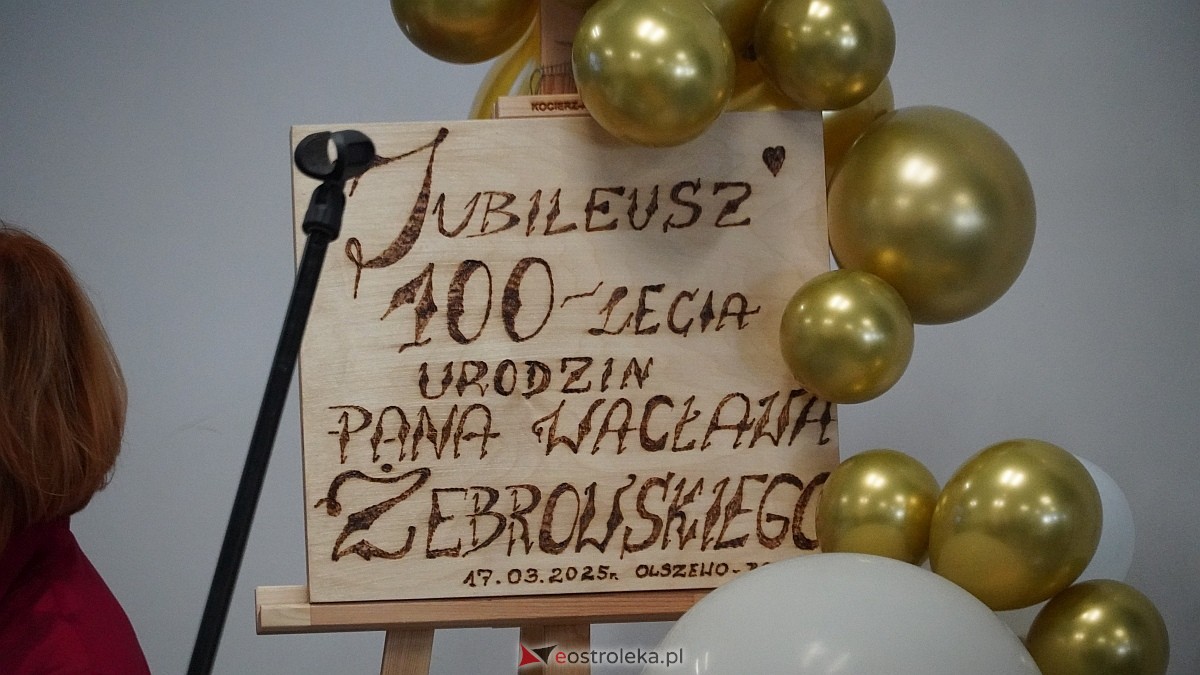 JUBILEUSZ
100-LECIA
URODZIN
PANA WACŁAWA
ŻEBROWSKIEGO
17.03.2025r. OLSZEWO-
eostroleka.pl